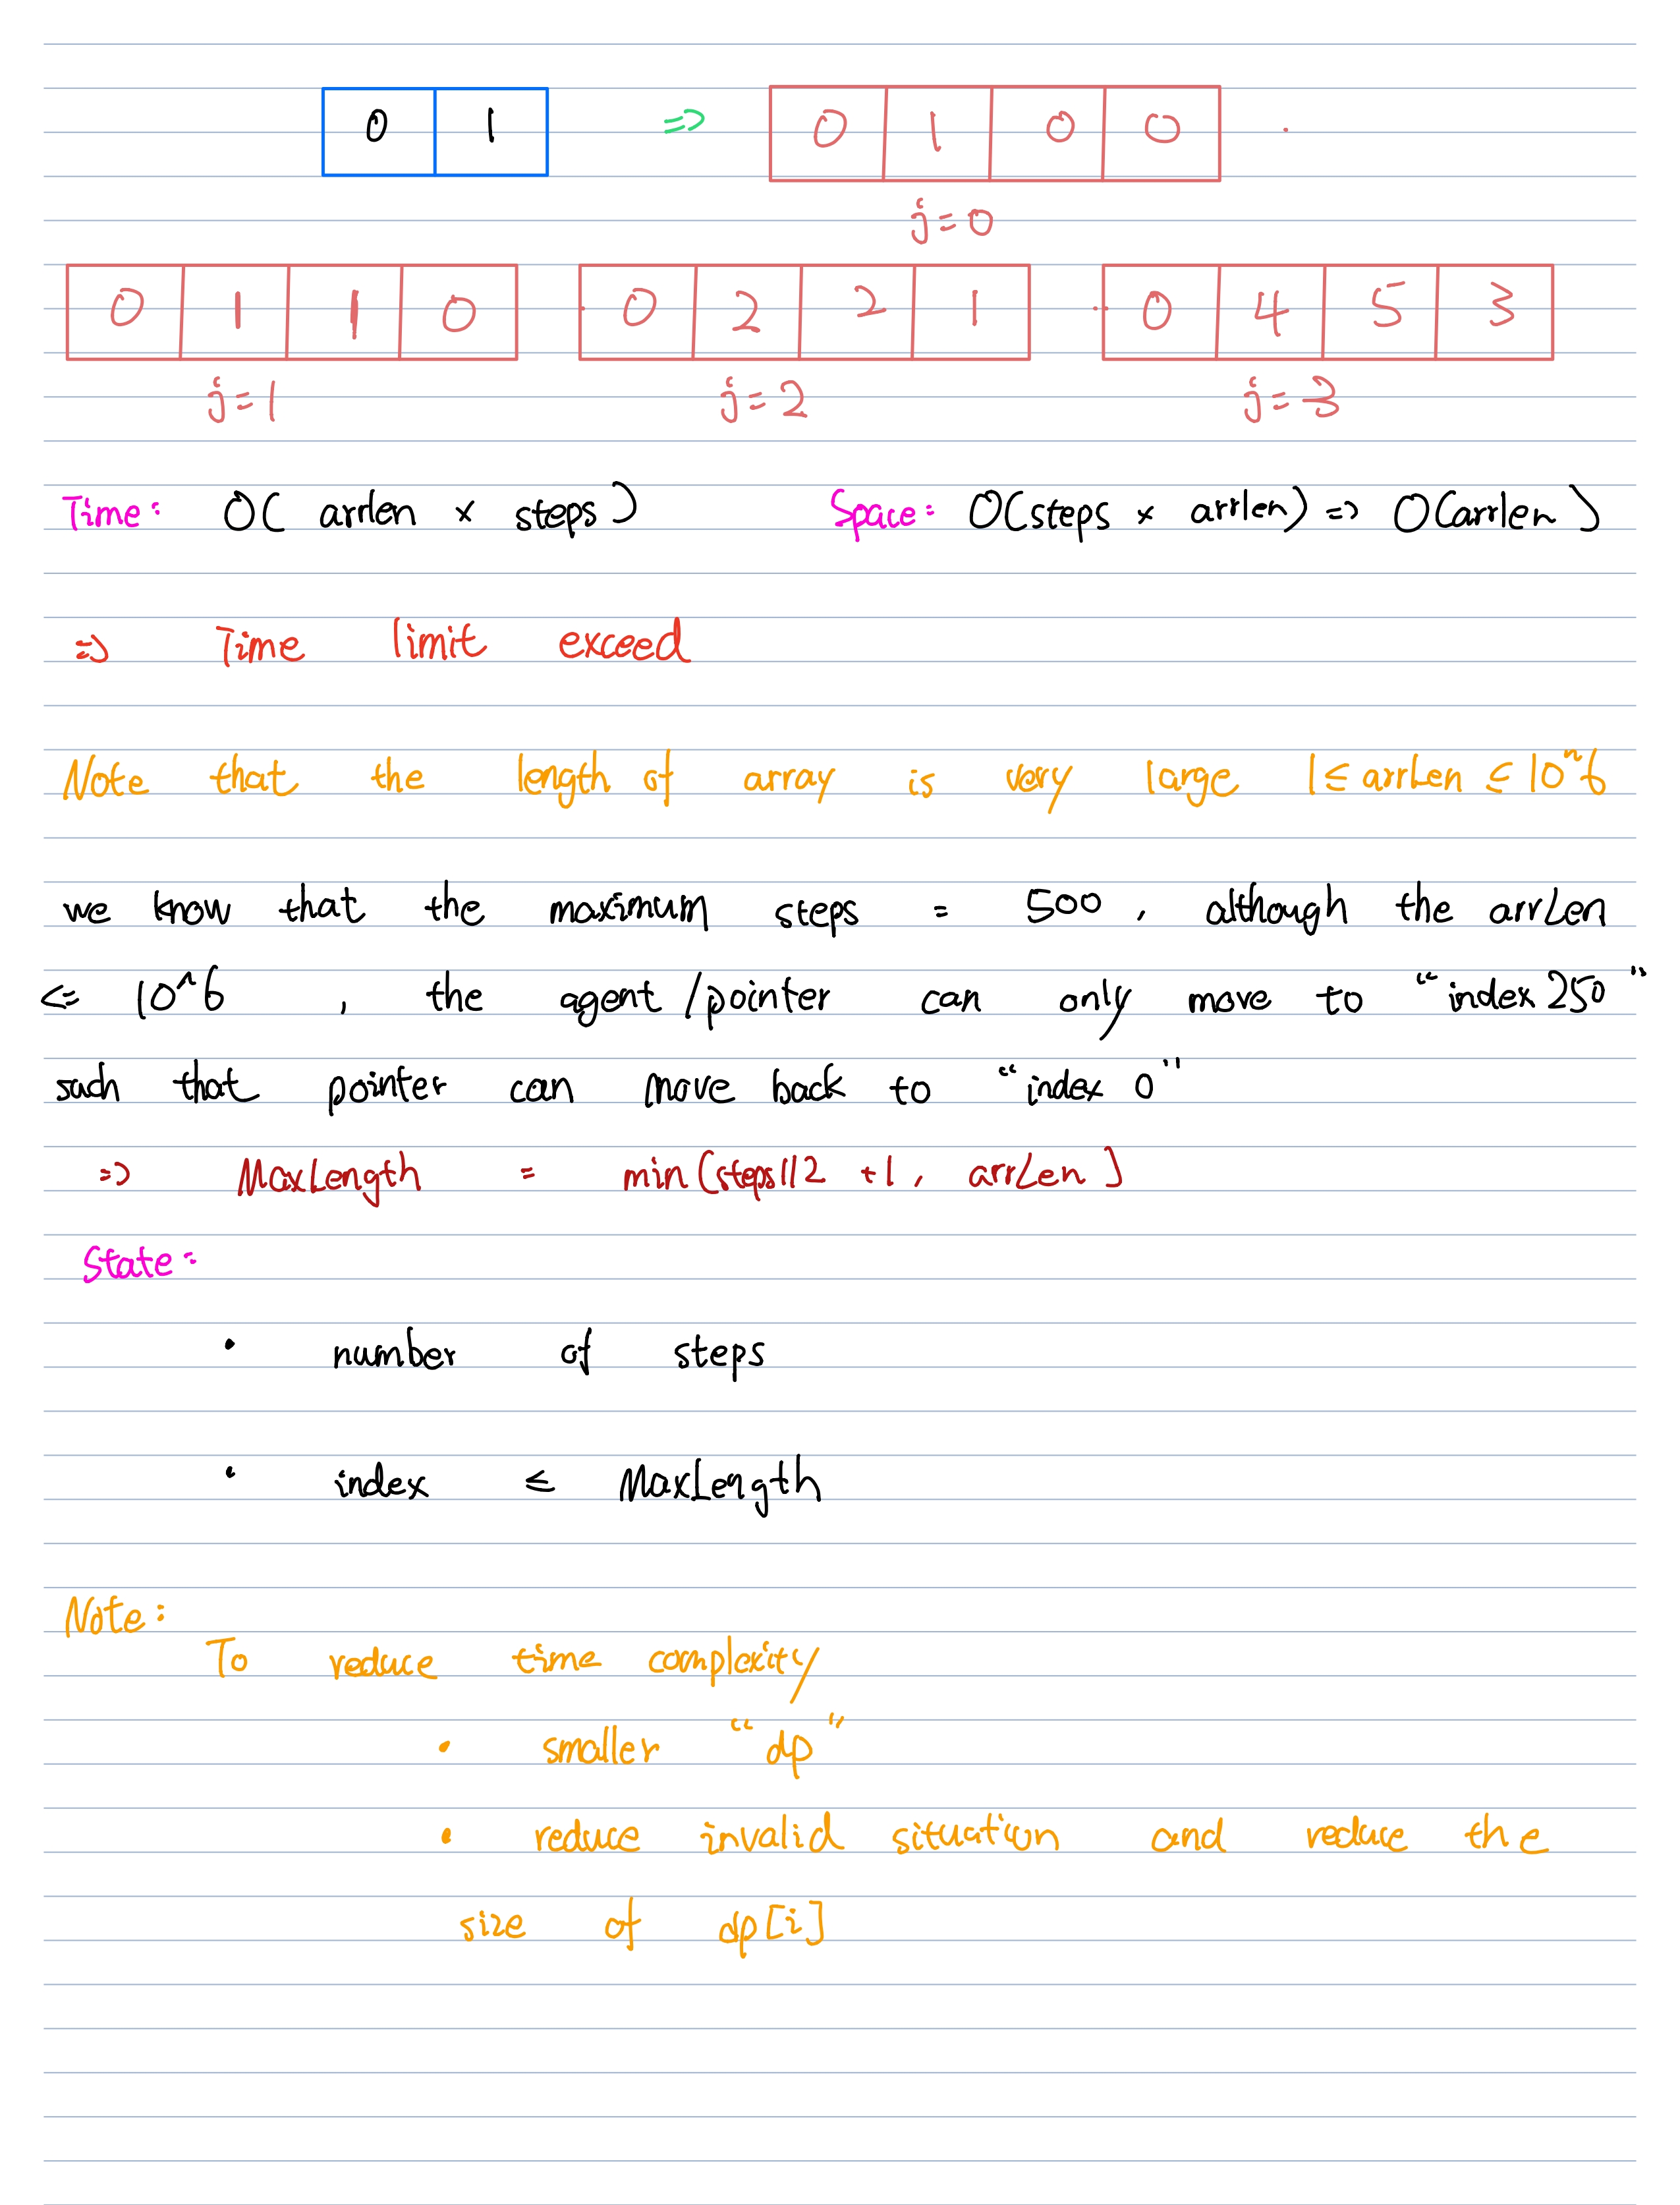 0 1 => 0 1 0 0 .
j=0
0 1 1 0 0 2 2 1 0 4 5 3
j=1 j=2 j=3
Time: O( arrlen x steps ) Space: O(steps x arrlen) => O(arrlen )
=> Time limit exceed
Note that the length of array is very large 1 ≤ arrLen ≤ 10^6
we know that the maximum steps = 500 , although the arrLen
<= 10^6 , the agent/pointer can only move to "index 250"
such that pointer can move back to "index 0"
=> MaxLength = min(steps//2 +1, arrLen )
State:
• number of steps
• index ≤ MaxLength
Note:
To reduce time complexity
• smaller "dp"
• reduce invalid situation and reduce the
size of dp[i]